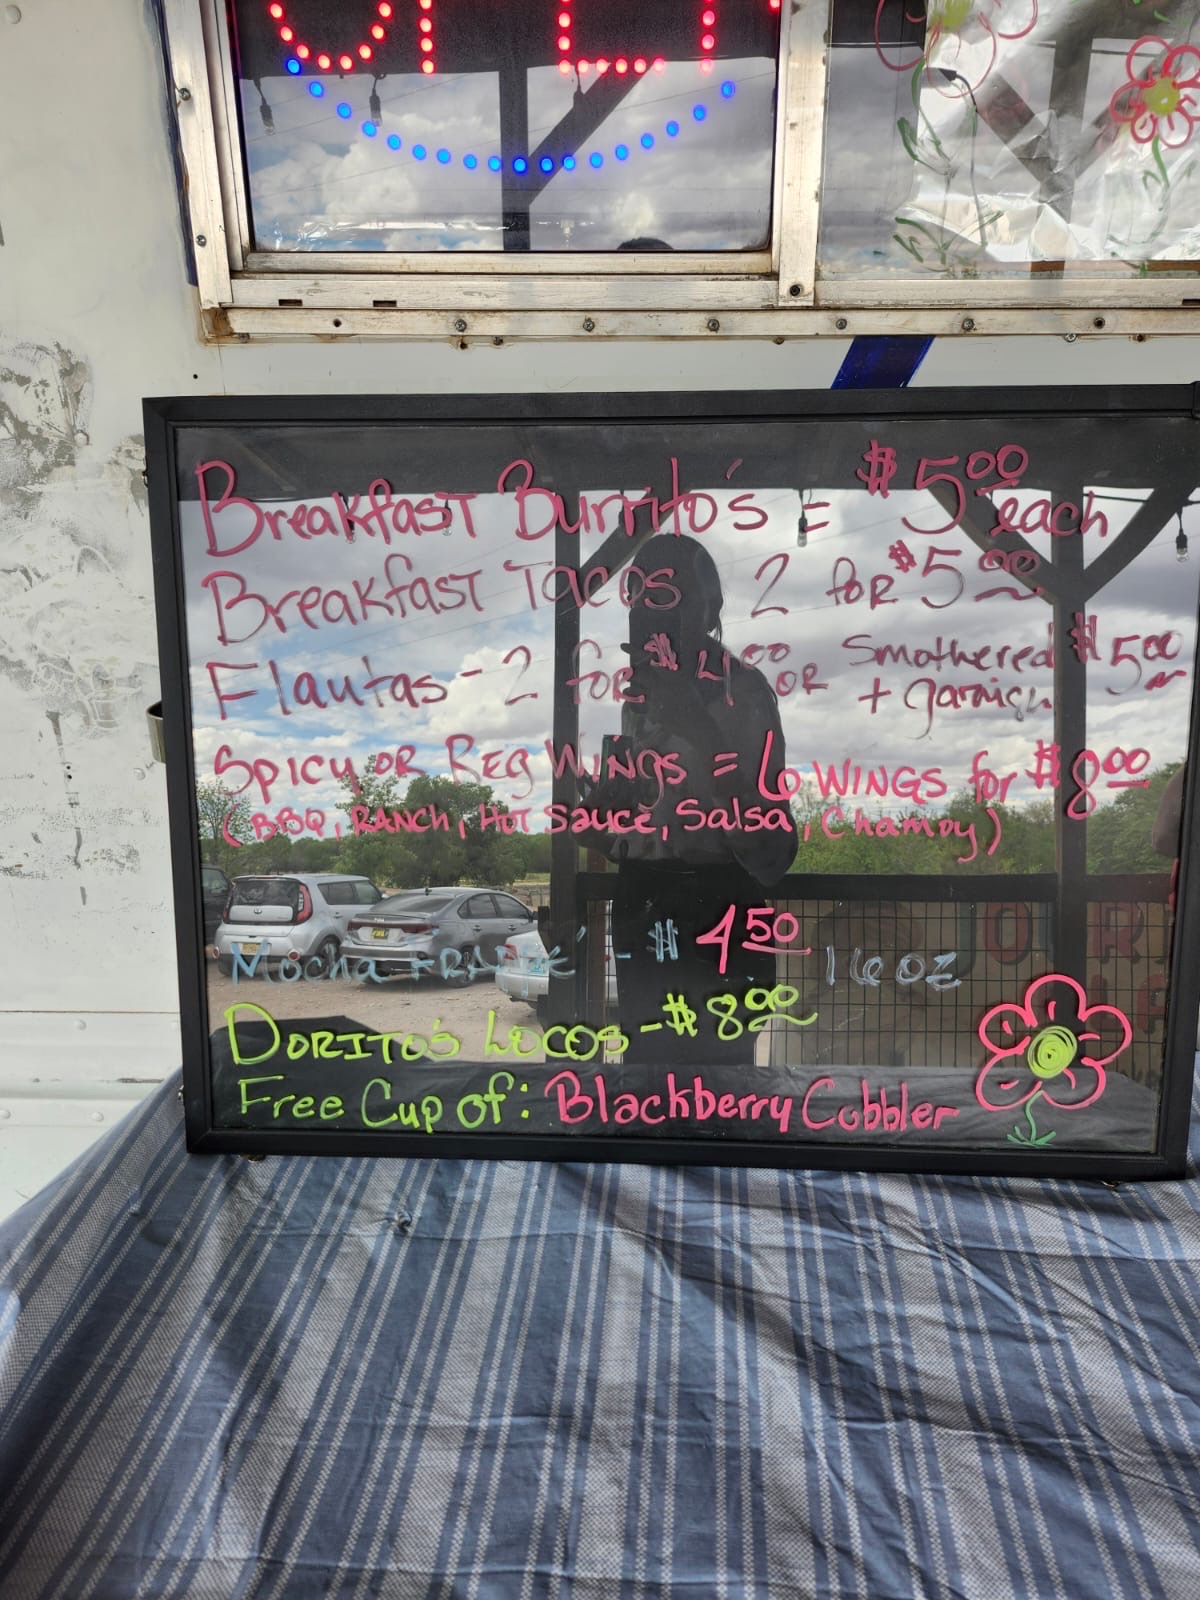 OPEN
Breakfast Burrito's = $5.00 each
Breakfast Tacos 2 for $5.00
Flautas - 2 for $4.00 or Smothered + garnish $5.00
Spicy or Reg Wings = 6 Wings for $8.00
(BBQ, Ranch, Hot Sauce, Salsa, Chamoy)
Mocha FRAPPE' - $4.50 16 oz
Dorito's Locos - $8.00
Free Cup of: Blackberry Cobbler